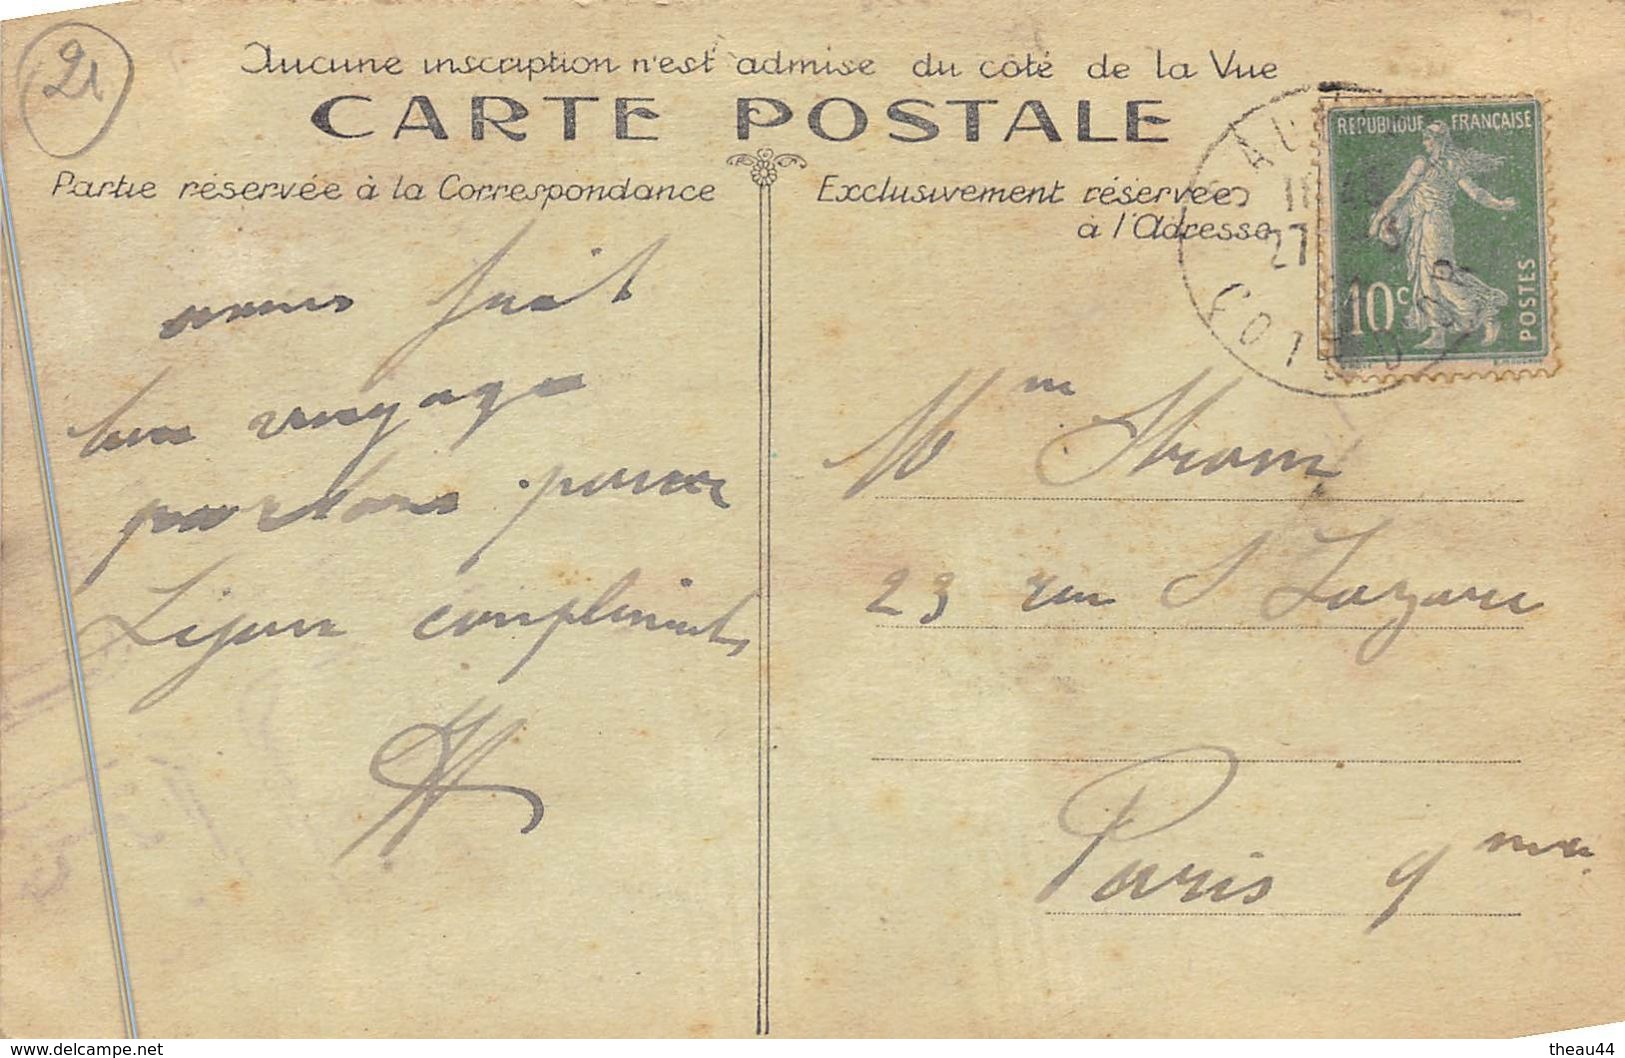 21
Aucune inscription n'est admise du côté de la Vue
CARTE POSTALE
Partie réservée à la Correspondance
Exclusivement réservée
à l'Adresse
REPUBLIQUE FRANÇAISE
10c
POSTES
COTE D'OR
27
avons fait
bon voyage
partons pour
Dijon compliments
Mm
23 rue St Lazare
Paris 9me
www.delcampe.net
theau44